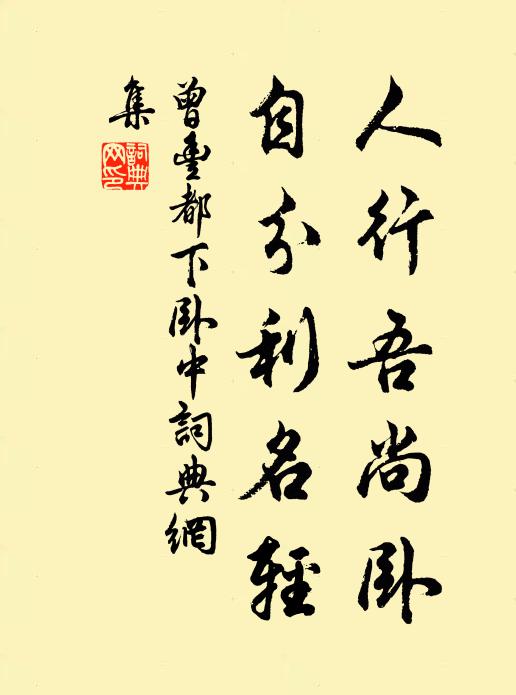 人行吾尚卧
自分利名輕
曾豐都下卧中詞典網
集
詞典網印